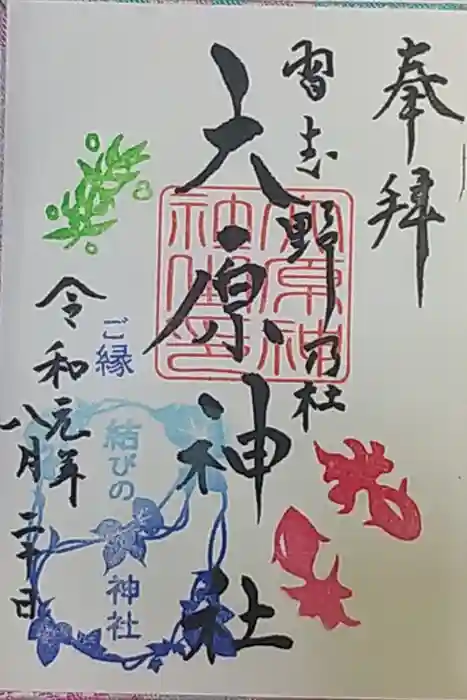 奉拝
習志野乃社
大原神社
大原神
社御印
ご縁
結びの
神社
令和元年
八月二十日